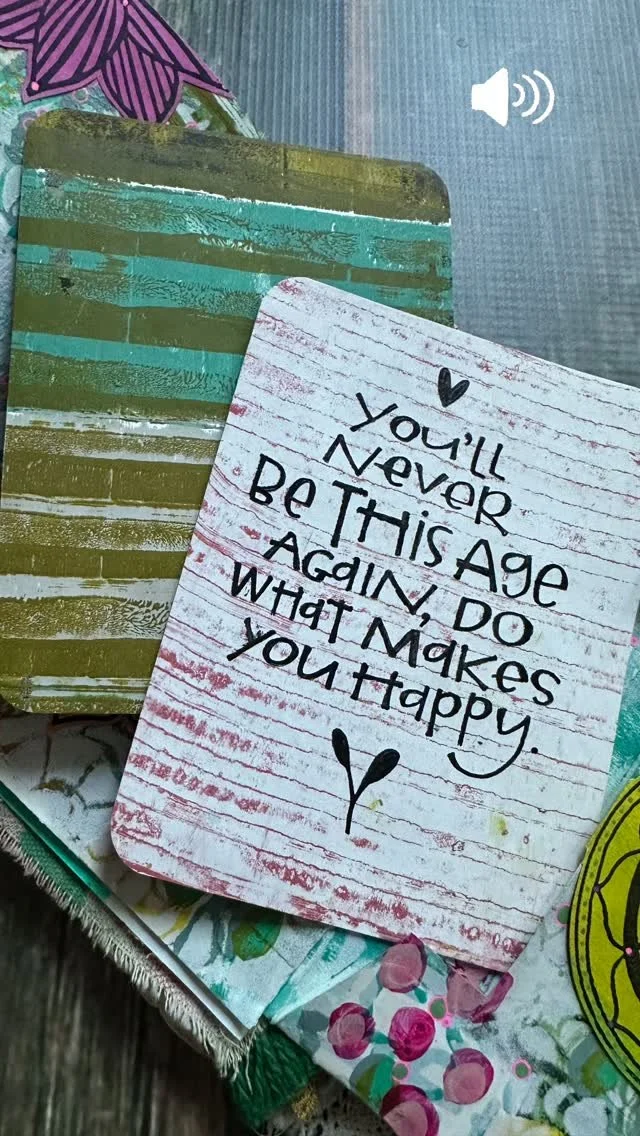 You'll
Never
Be This Age
Again, Do
What Makes
You Happy.